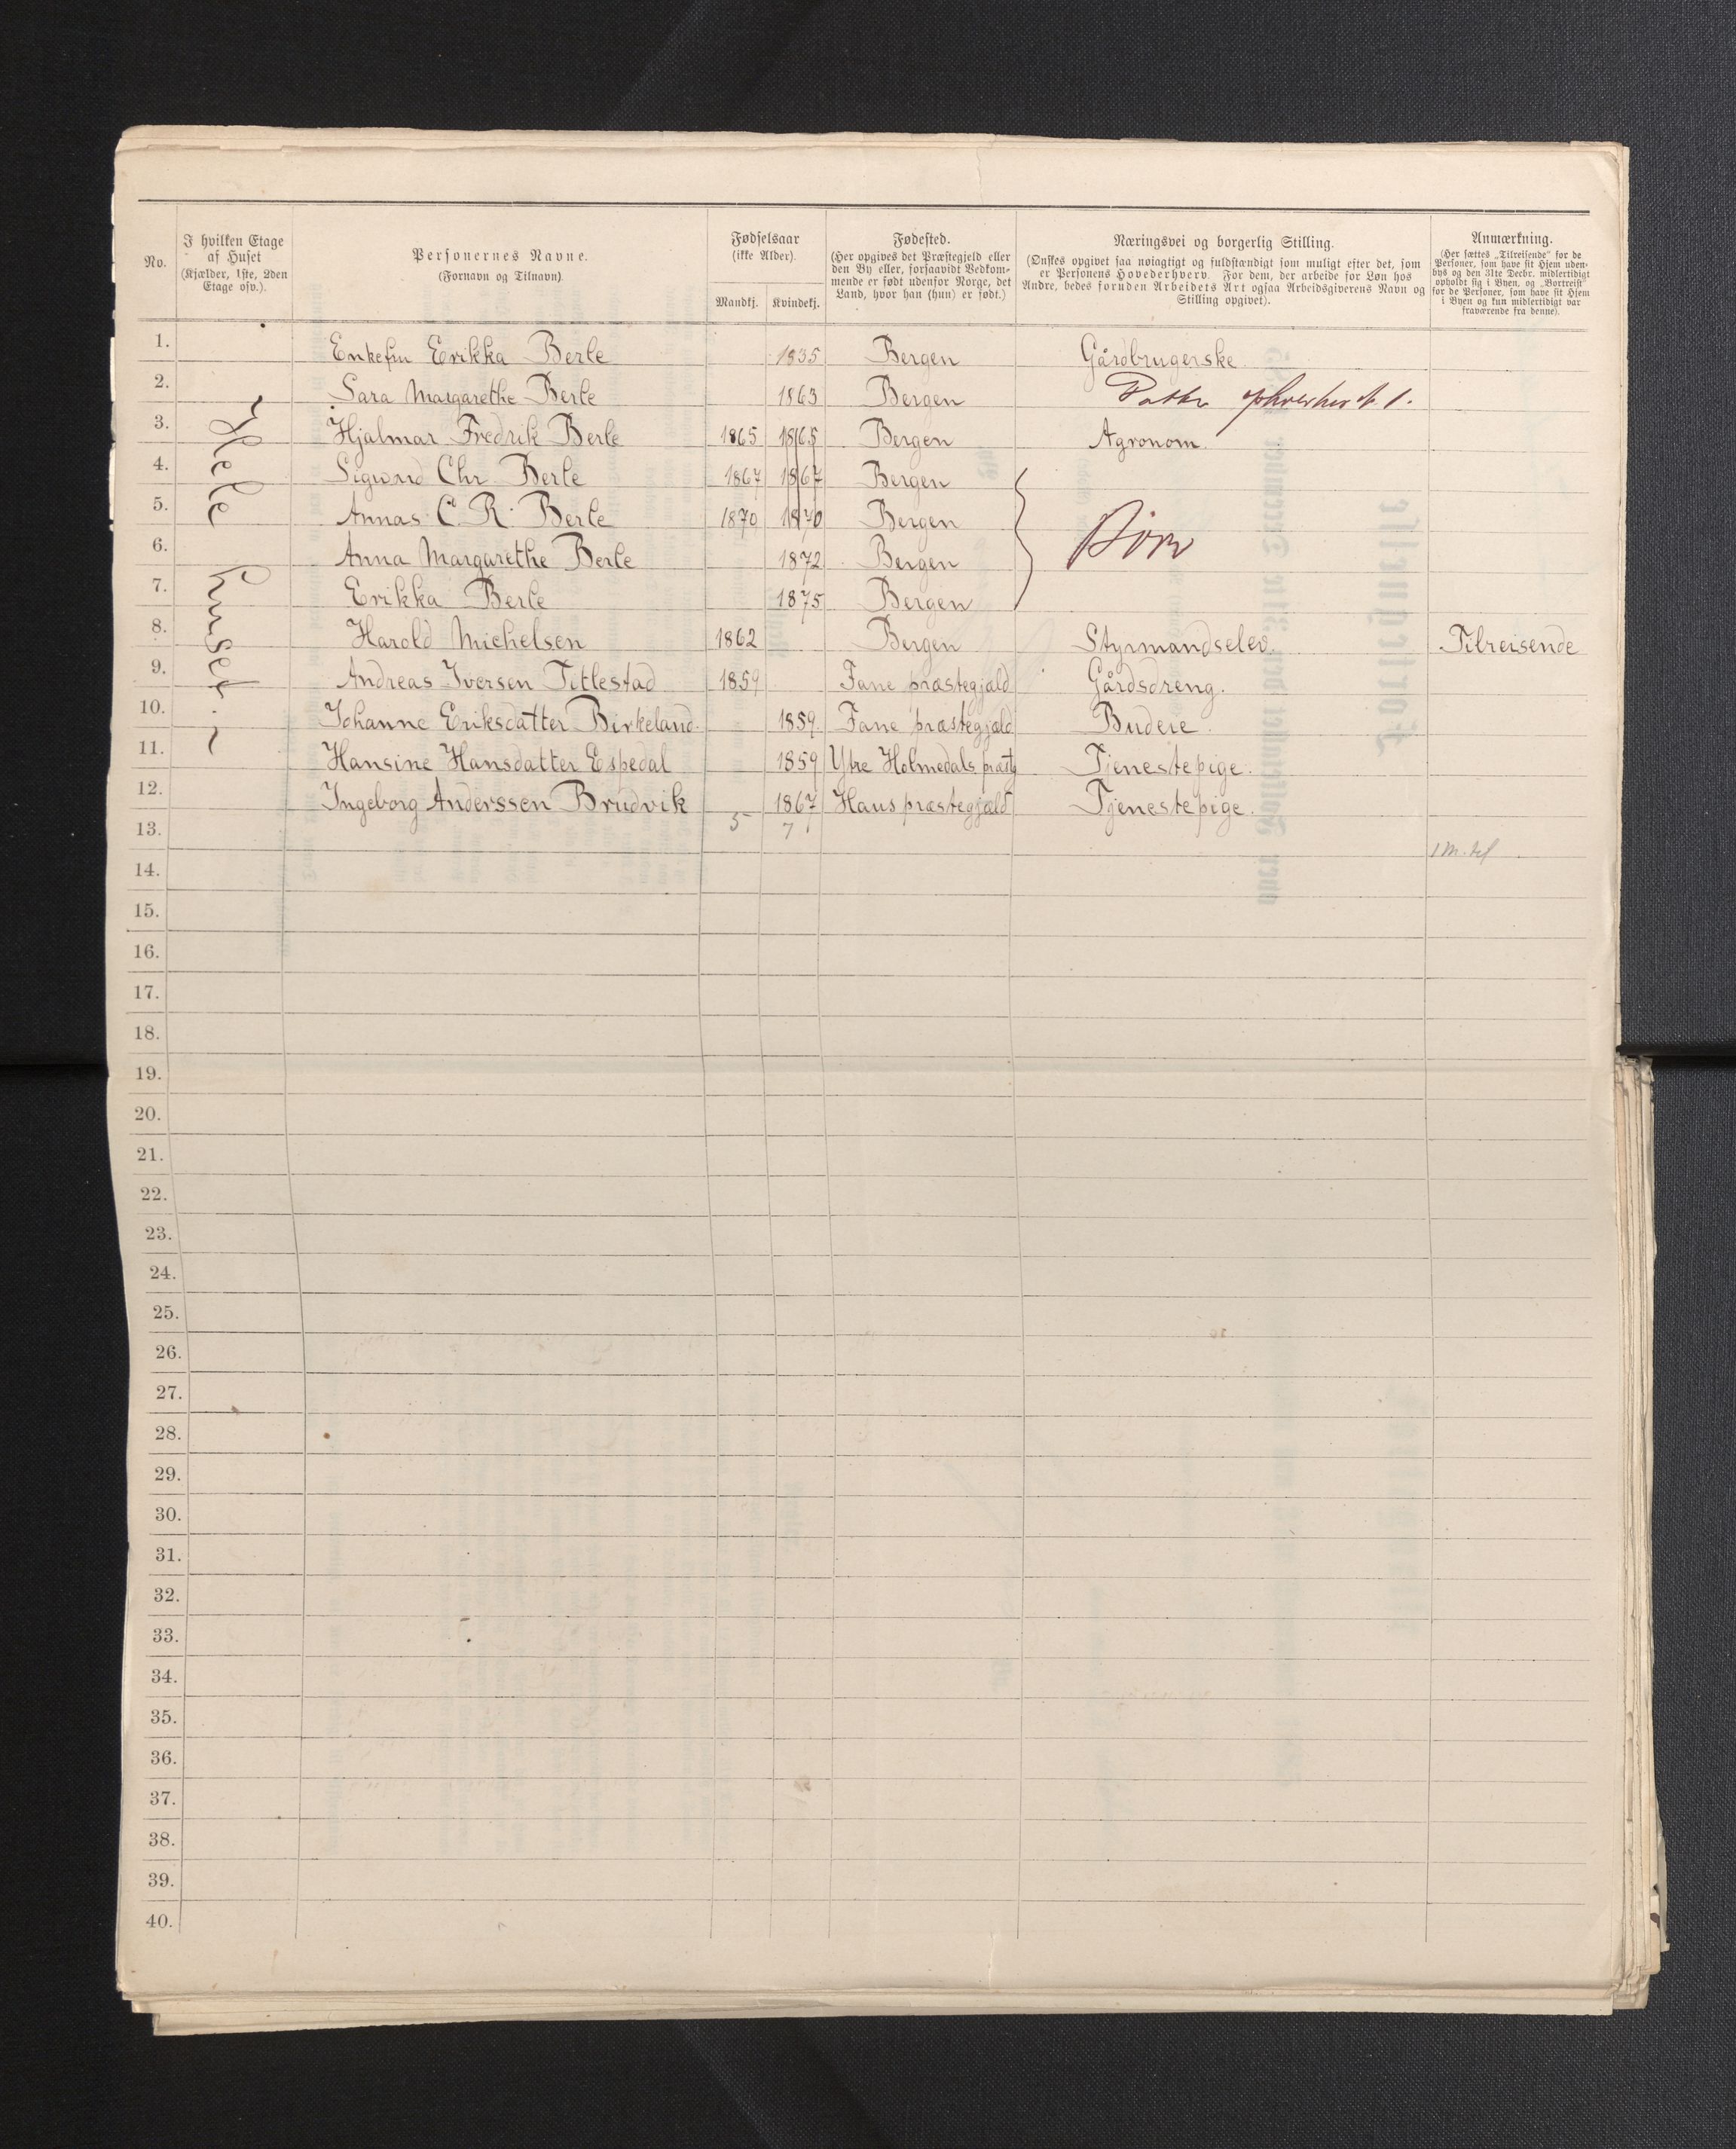 No.
I hvilken Etage af Huset (Kjælder, 1ste, 2den Etage osv.).
Personernes Navne. (Fornavn og Tilnavn).
Fødselsaar (ikke Alder).
Mandkj. Kvindekj.
Fødested. (Her opgives det Præstegjeld eller den By eller, forsaavidt Vedkommende er født udenfor Norge, det Land, hvor han (hun) er født.)
Næringsvei og borgerlig Stilling. (Ønskes opgivet saa nøiagtigt og fuldstændigt som muligt efter det, som er Personens Hovederhverv. For dem, der arbeide for Løn hos Andre, bedes foruden Arbeidets Art ogsaa Arbeidsgiverens Navn og Stilling opgivet).
Anmærkning. (Her sættes „Tilreisende" for de Personer, som have sit Hjem udenbys og den 31te Decbr. midlertidigt opholdt sig i Byen, og „Bortreist" for de Personer, som have sit Hjem i Byen og kun midlertidigt var fraværende fra denne).
Hele huset.
1. Enkefru Erikka Berle 1835 Bergen Gårdbrugerske
2. Sara Margarethe Berle 1863 Bergen
3. Hjalmar Fredrik Berle 1865 1865 Bergen Agronom.
4. Sigurd Chr Berle 1867 1867 Bergen
5. Annas C. R. Berle 1870 1870 Bergen
Børn
6. Anna Margarethe Berle 1872 Bergen
7. Erikka Berle 1875 Bergen
8. Harold Michelsen 1862 Bergen Styrmandselev. Tilreisende
9. Andreas Iversen Titlestad 1859 Fane præstegjæld Gårdsdreng.
10. Johanne Eriksdatter Birkeland. 1859. Fane præstegjæld Budeie.
11. Hansine Hansdatter Espedal 1859 Ytre Holmedals præstg Tjenestepige.
12. Ingeborg Anderssen Brudvik 1867 Haus præstegjæld Tjenestepige.
13. 5 7
14.
15.
16.
17.
18.
19.
20.
21.
22.
23.
24.
25.
26.
27.
28.
29.
30.
31.
32.
33.
34.
35.
36.
37.
38.
39.
40.